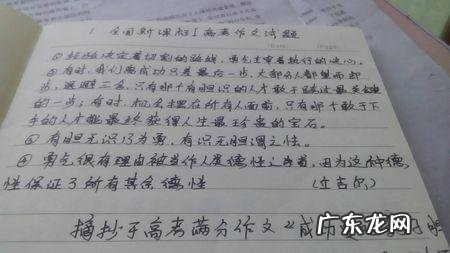 1 全国新课标I高考作文试题
① 经验决定着切割的路线，勇气主宰着执行的决心。
② 有时，我们离成功只差最后一步，大部分人都望而却
步，退避三舍，只有那个有胆识的人才敢于跨过最关键
的一步；有时，机会摆在所有人面前，只有那个敢于下
手的人才能最终获得人生最珍贵的宝石。
③ 有胆无识乃为勇，有识无胆谓之怯。
④ 勇气很有理由被当作人类德性之首，因为这种德
性保证了所有其余德性 （丘吉尔）
摘抄于高考满分作文《成功
广东龙网